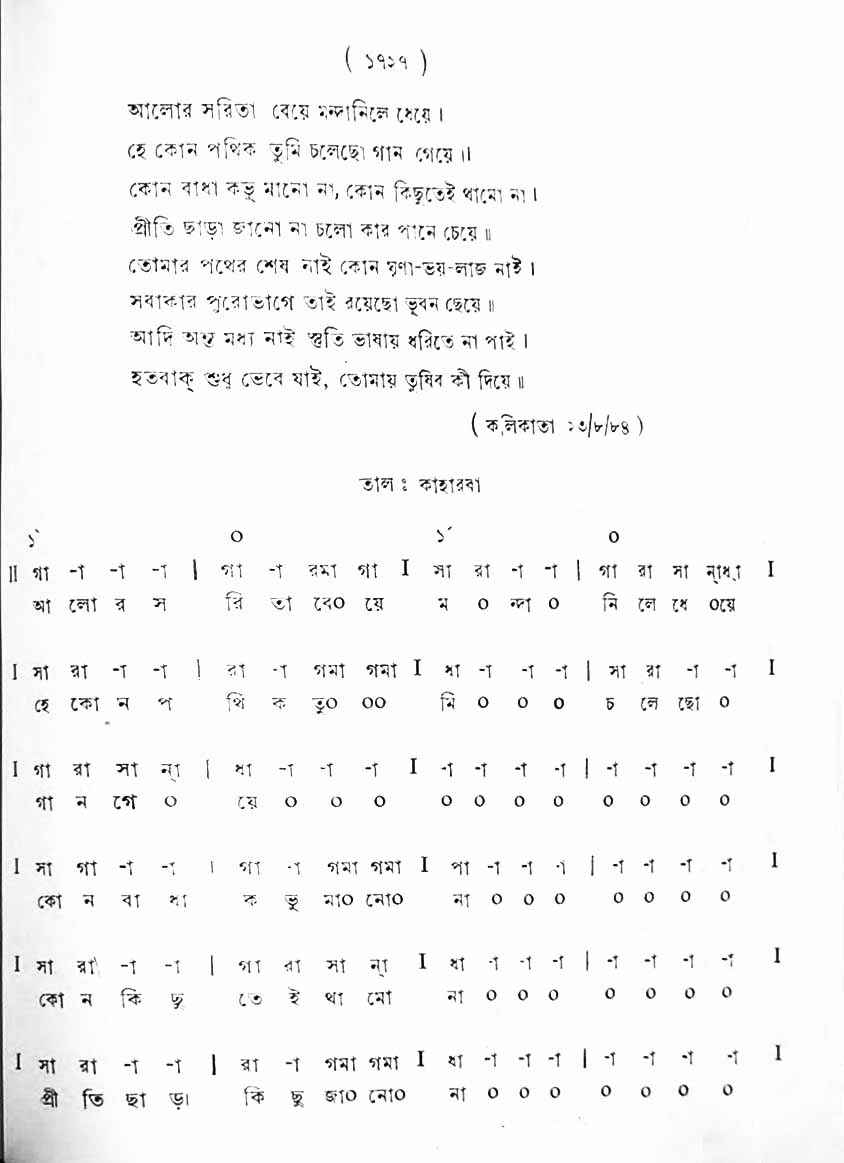 ( ১৭১৭ )
আলোর সরিতা বেয়ে মন্দানিলে ধেয়ে ।
হে কোন পথিক তুমি চলেছো গান গেয়ে ॥
কোন বাধা কভু মানো না, কোন কিছুতেই থামো না ।
প্রীতি ছাড়া জানো না চলো কার পানে চেয়ে ॥
তোমার পথের শেষ নাই কোন ঘৃণা-ভয়-লাজ নাই ।
সবাকার পুরোভাগে তাই রয়েছো ভূবন ছেয়ে ॥
আদি অন্ত মধ্য নাই স্তুতি ভাষায় ধরিতে না পাই ।
হতবাক্ শুধু ভেবে যাই, তোমায় তুষিব কী দিয়ে ॥
( কলিকাতা ১৩/৮/৮৪ )
তাল ঃ কাহারবা
১´ ০ ১´ ০
॥ গা -া -া -া | গা -া রমা গা I সা রা -া -া | গা রা সা ন্‌ধ্‌া I
আ লো র স রি তা বে০ য়ে ম ০ ন্দা ০ নি লে ধে ০য়ে
I সা রা -া -া | রা -া গমা গমা I ধা -া -া -া | সা রা -া -া I
হে কো ন প থি ক তু০ ০০ মি ০ ০ ০ চ লে ছো ০
I গা রা সা ন্‌া | ধা -া -া -া I -া -া -া -া | -া -া -া -া I
গা ন গে ০ য়ে ০ ০ ০ ০ ০ ০ ০ ০ ০ ০ ০
I সা গা -া -া | গা -া গমা গমা I পা -া -া -া | -া -া -া -া I
কো ন বা ধা ক ভূ মা০ নো০ না ০ ০ ০ ০ ০ ০ ০
I সা রা -া -া | গা রা সা ন্‌া I ধা -া -া -া | -া -া -া -া I
কো ন কি ছু তে ই থা মো না ০ ০ ০ ০ ০ ০ ০
I সা রা -া -া | রা -া গমা গমা I ধা -া -া -া | -া -া -া -া I
প্রী তি ছা ড়া কি ছু জা০ নো০ না ০ ০ ০ ০ ০ ০ ০